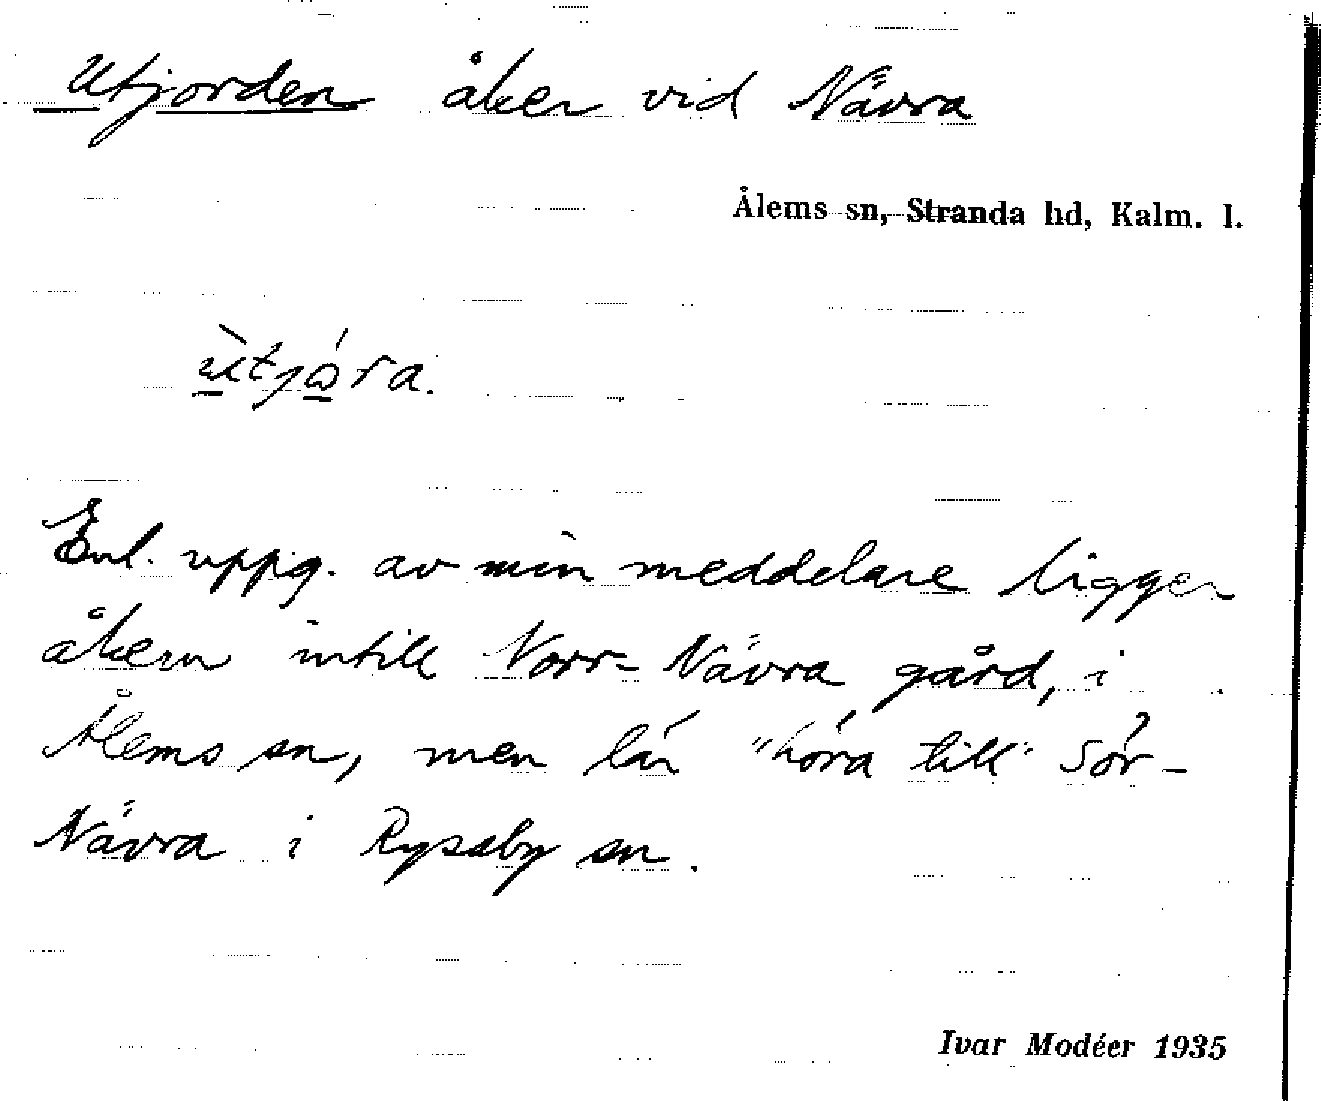 Utjorden åker vid Nävra
Ålems sn, Stranda hd, Kalm. l.
Enl. uppg. av min meddelare ligger
åkern intill Norr-Nävra gård, i
Ålems sn, men lär "höra till" Sör-
Nävra i Ryssby sn.
Ivar Modéer 1935